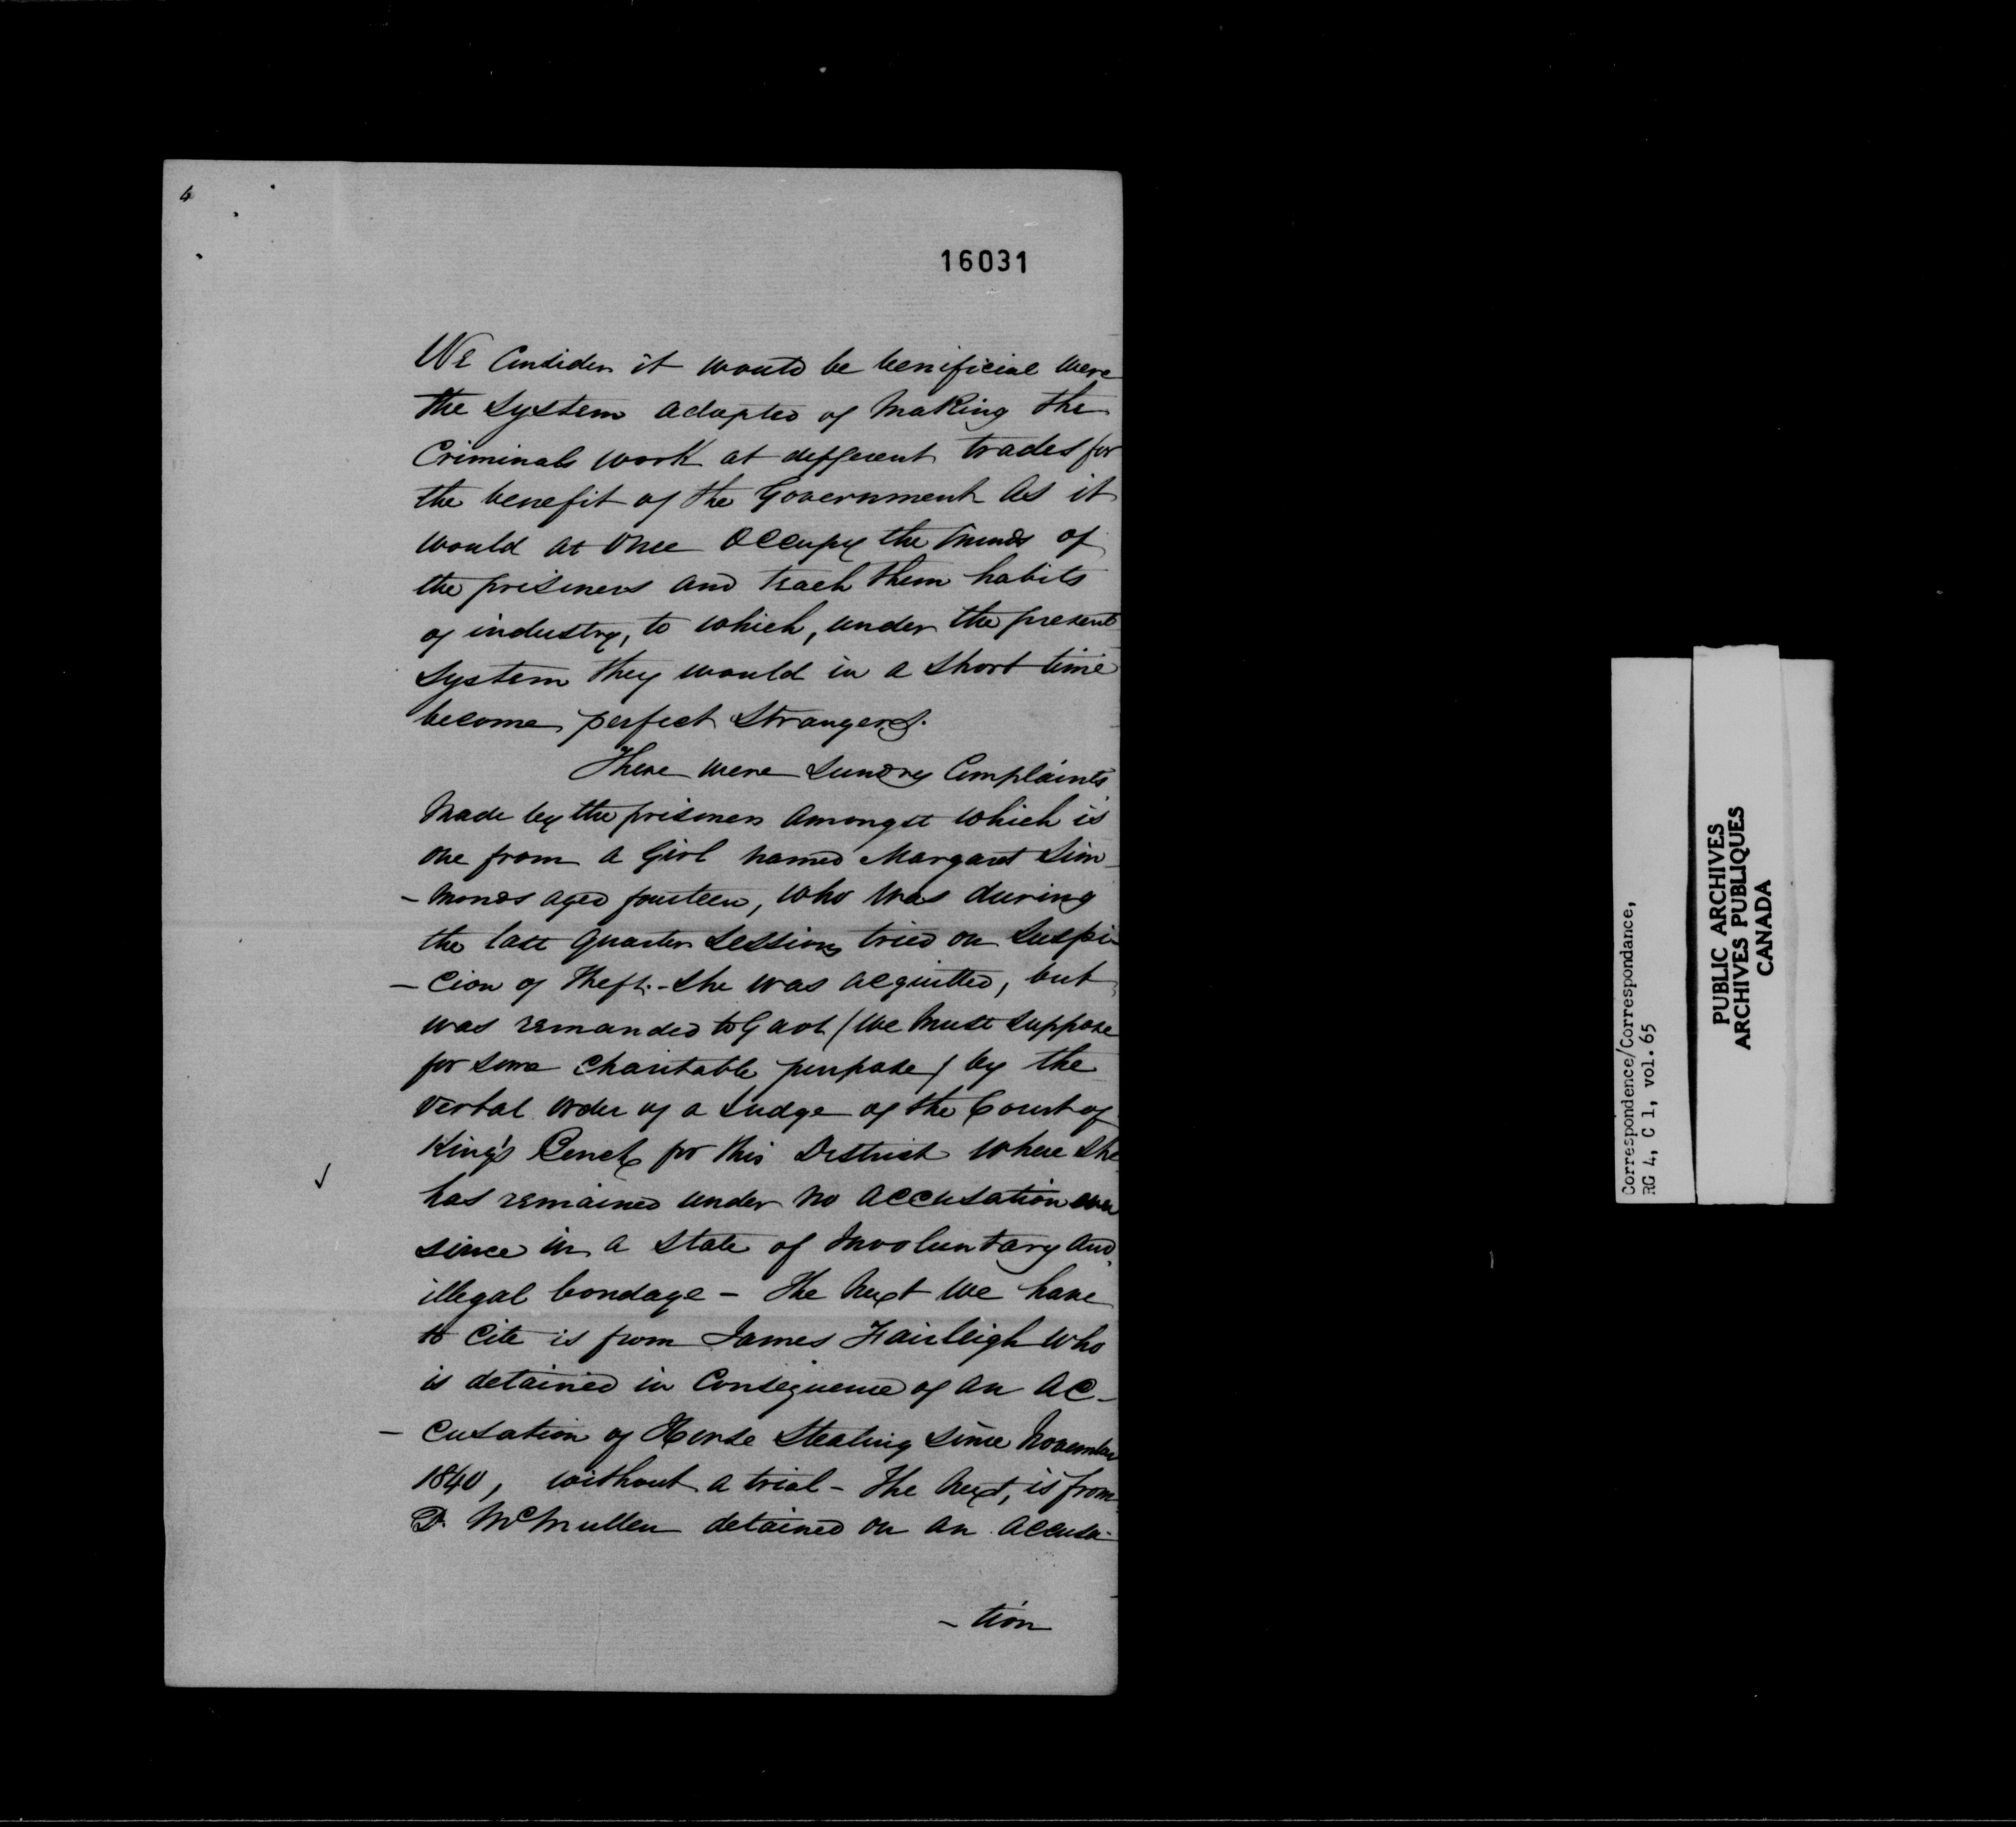 4
16031
We Consider it would be benificial were
the system adopted of making the
Criminals work at different trades for
the benefit of the Government As it
would at once occupy the minds of
the prisoners and teach them habits
of industry, to which, under the present
system they would in a short time
become perfect strangers.
There were sundry Complaints
made by the prisoners amongst which is
one from a Girl named Margaret Sim
- monds aged fourteen, who was during
the last quarter Sessions tried on Suspi-
- cion of Theft. - she was acquitted, but
was remanded to Gaol (We must suppose
for some charitable purpose) by the
verbal order of a Judge of the Court of
King's Bench for this District where she
has remained under no accusation ever
since in a state of Involuntary and
illegal bondage - The next we have
to cite is from James Fairleigh who
is detained in Consequence of an ac-
- cusation of Horse Stealing since November
1840, without a trial - The next, is from
D. McMullen detained on an accusa-
- tion
Correspondence/Correspondance,
RG 4, C 1, vol. 65
PUBLIC ARCHIVES
ARCHIVES PUBLIQUES
CANADA